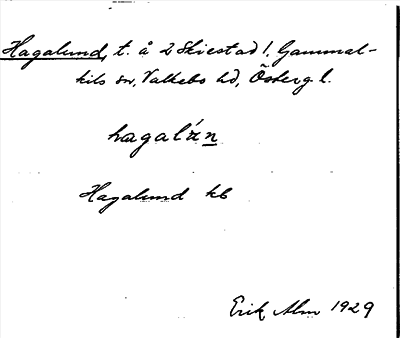 Hagalund, t. å 2 Skiestad l. Gammal-
kils sn, Valkebo hd, Österg l.
hagalń̲
Hagalund kb
Erik Alm 1929